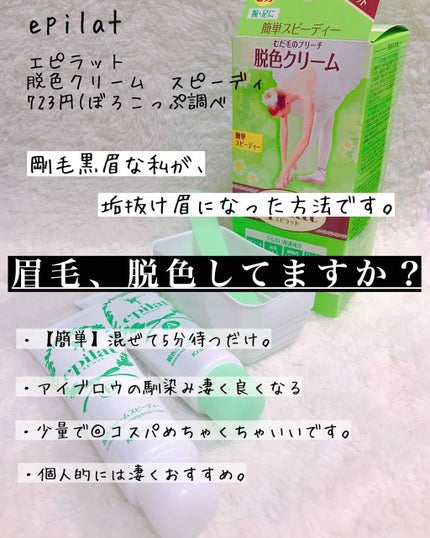 epilat
エピラット
脱色クリーム スピーディ
723円(ぼろこっぷ調べ
剛毛黒眉な私が、
垢抜け眉になった方法です。
眉毛、脱色してますか？
・【簡単】混ぜて5分待つだけ。
・アイブロウの馴染み凄く良くなる
・少量で◎コスパめちゃくちゃいいです。
・個人的には凄くおすすめ。
腕・足に
簡単スピーディー
むだ毛のブリーチ
脱色クリーム
簡単
スピーディー
エピラット
epilat
epilat